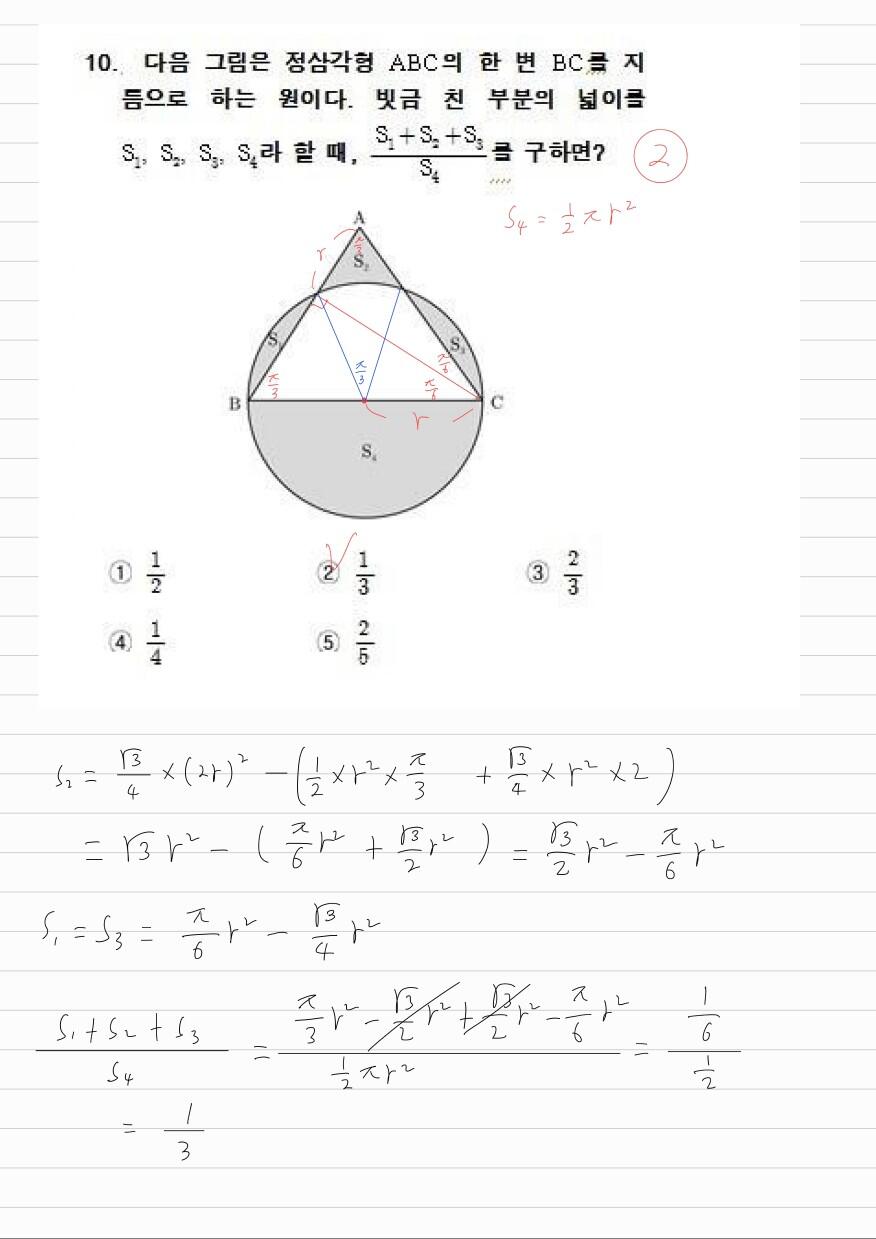 10. 다음 그림은 정삼각형 ABC의 한 변 BC를 지
름으로 하는 원이다. 빗금 친 부분의 넓이를
S₁, S₂, S₃, S₄라 할 때, (S₁+S₂+S₃)/S₄ 를 구하면? ②
S₄ = 1/2 πr²
A
r π/3
S₂
S₁ S₃
π/3 π/3 π/6 π/6
B C
r
S₄
① 1/2 ② 1/3 ③ 2/3
④ 1/4 ⑤ 2/5
S₂ = √3/4 × (2r)² − (1/2 × r² × π/3 + √3/4 × r² × 2)
= √3 r² − (π/6 r² + √3/2 r²) = √3/2 r² − π/6 r²
S₁ = S₃ = π/6 r² − √3/4 r²
(S₁ + S₂ + S₃)/S₄ = (π/3 r² − √3/2 r² + √3/2 r² − π/6 r²)/(1/2 πr²) = (1/6)/(1/2)
= 1/3